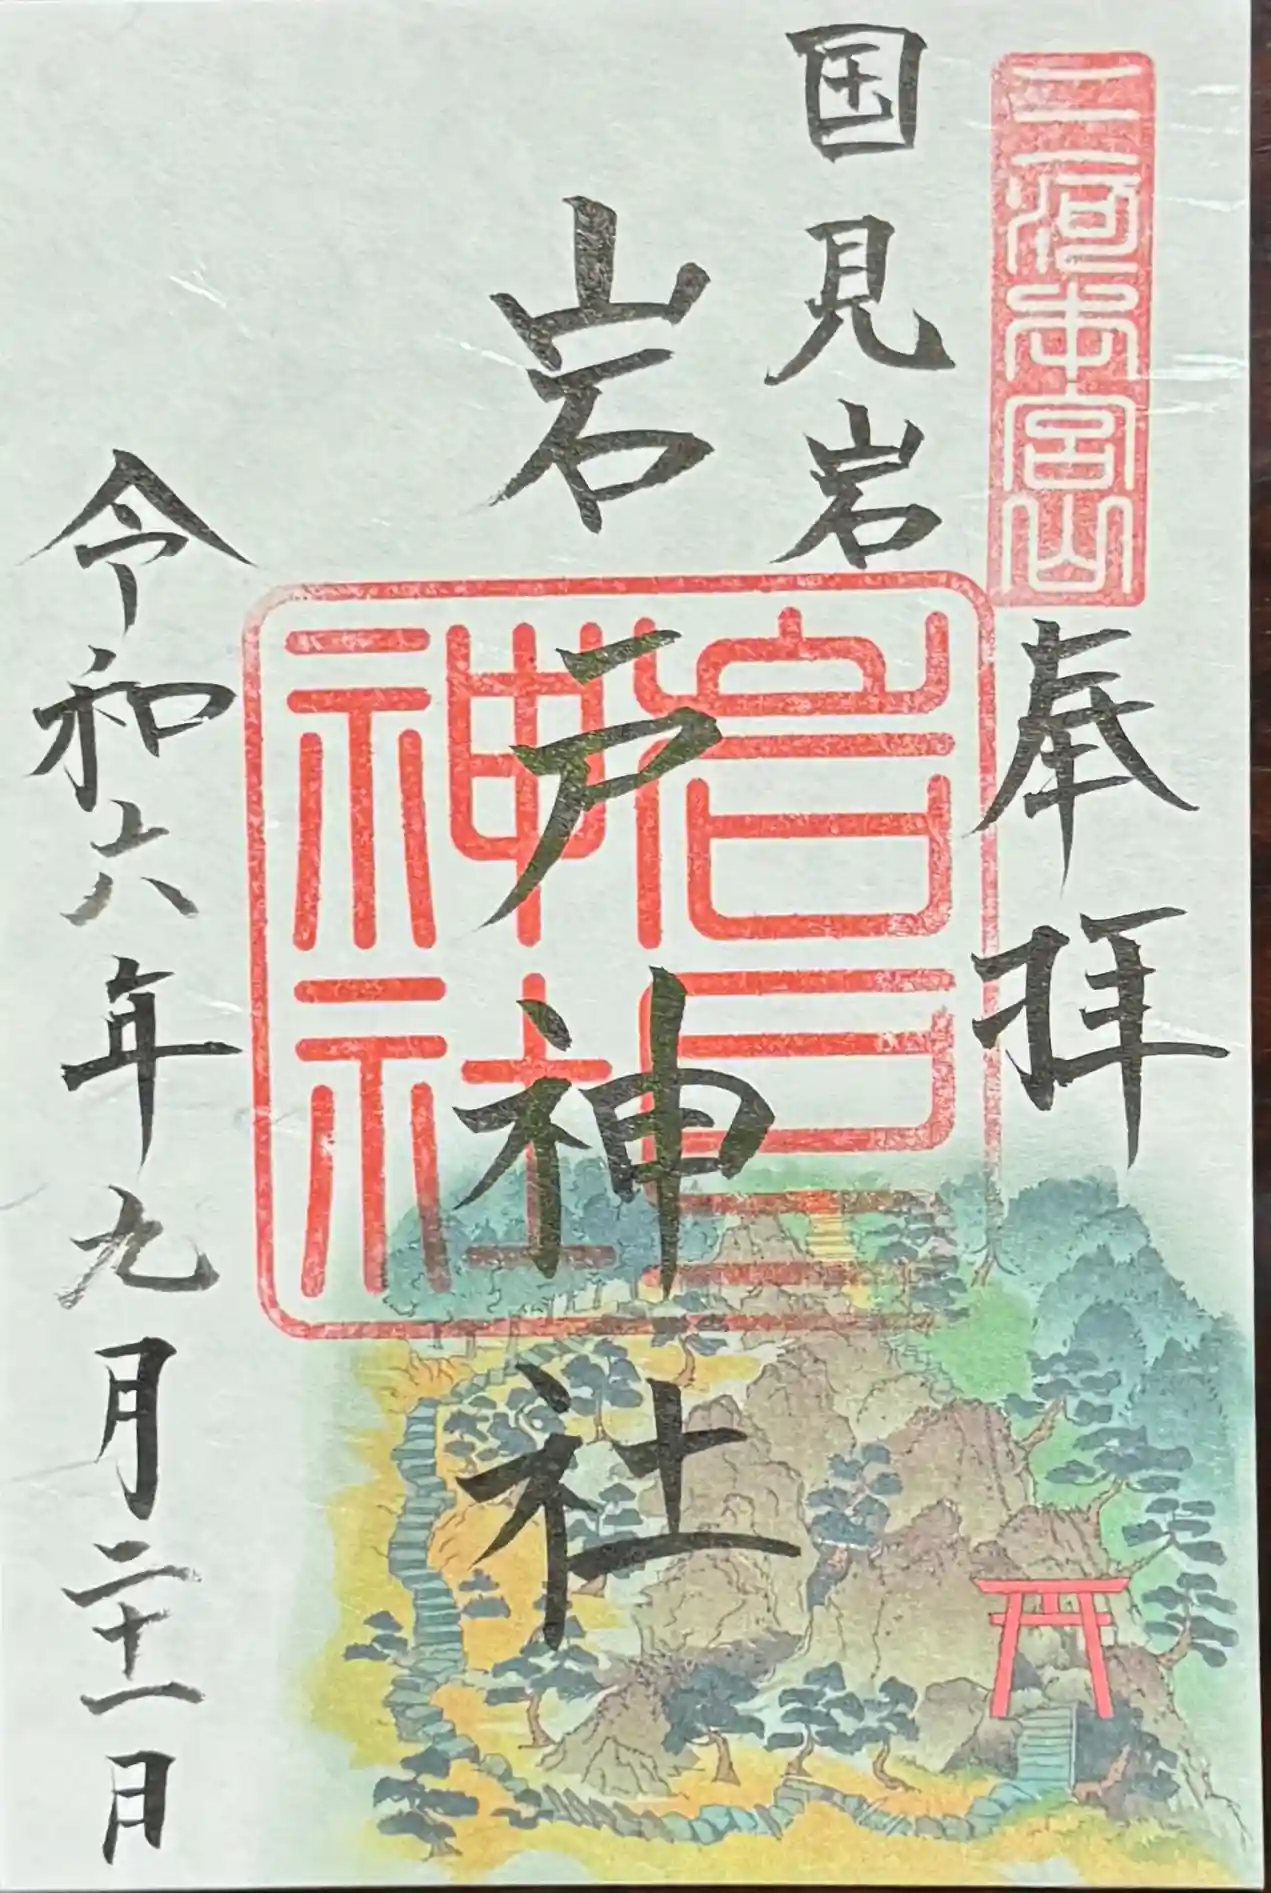 三河本宮山
奉拝
国見岩
岩戸神社
岩戸神社
令和六年九月二十一日